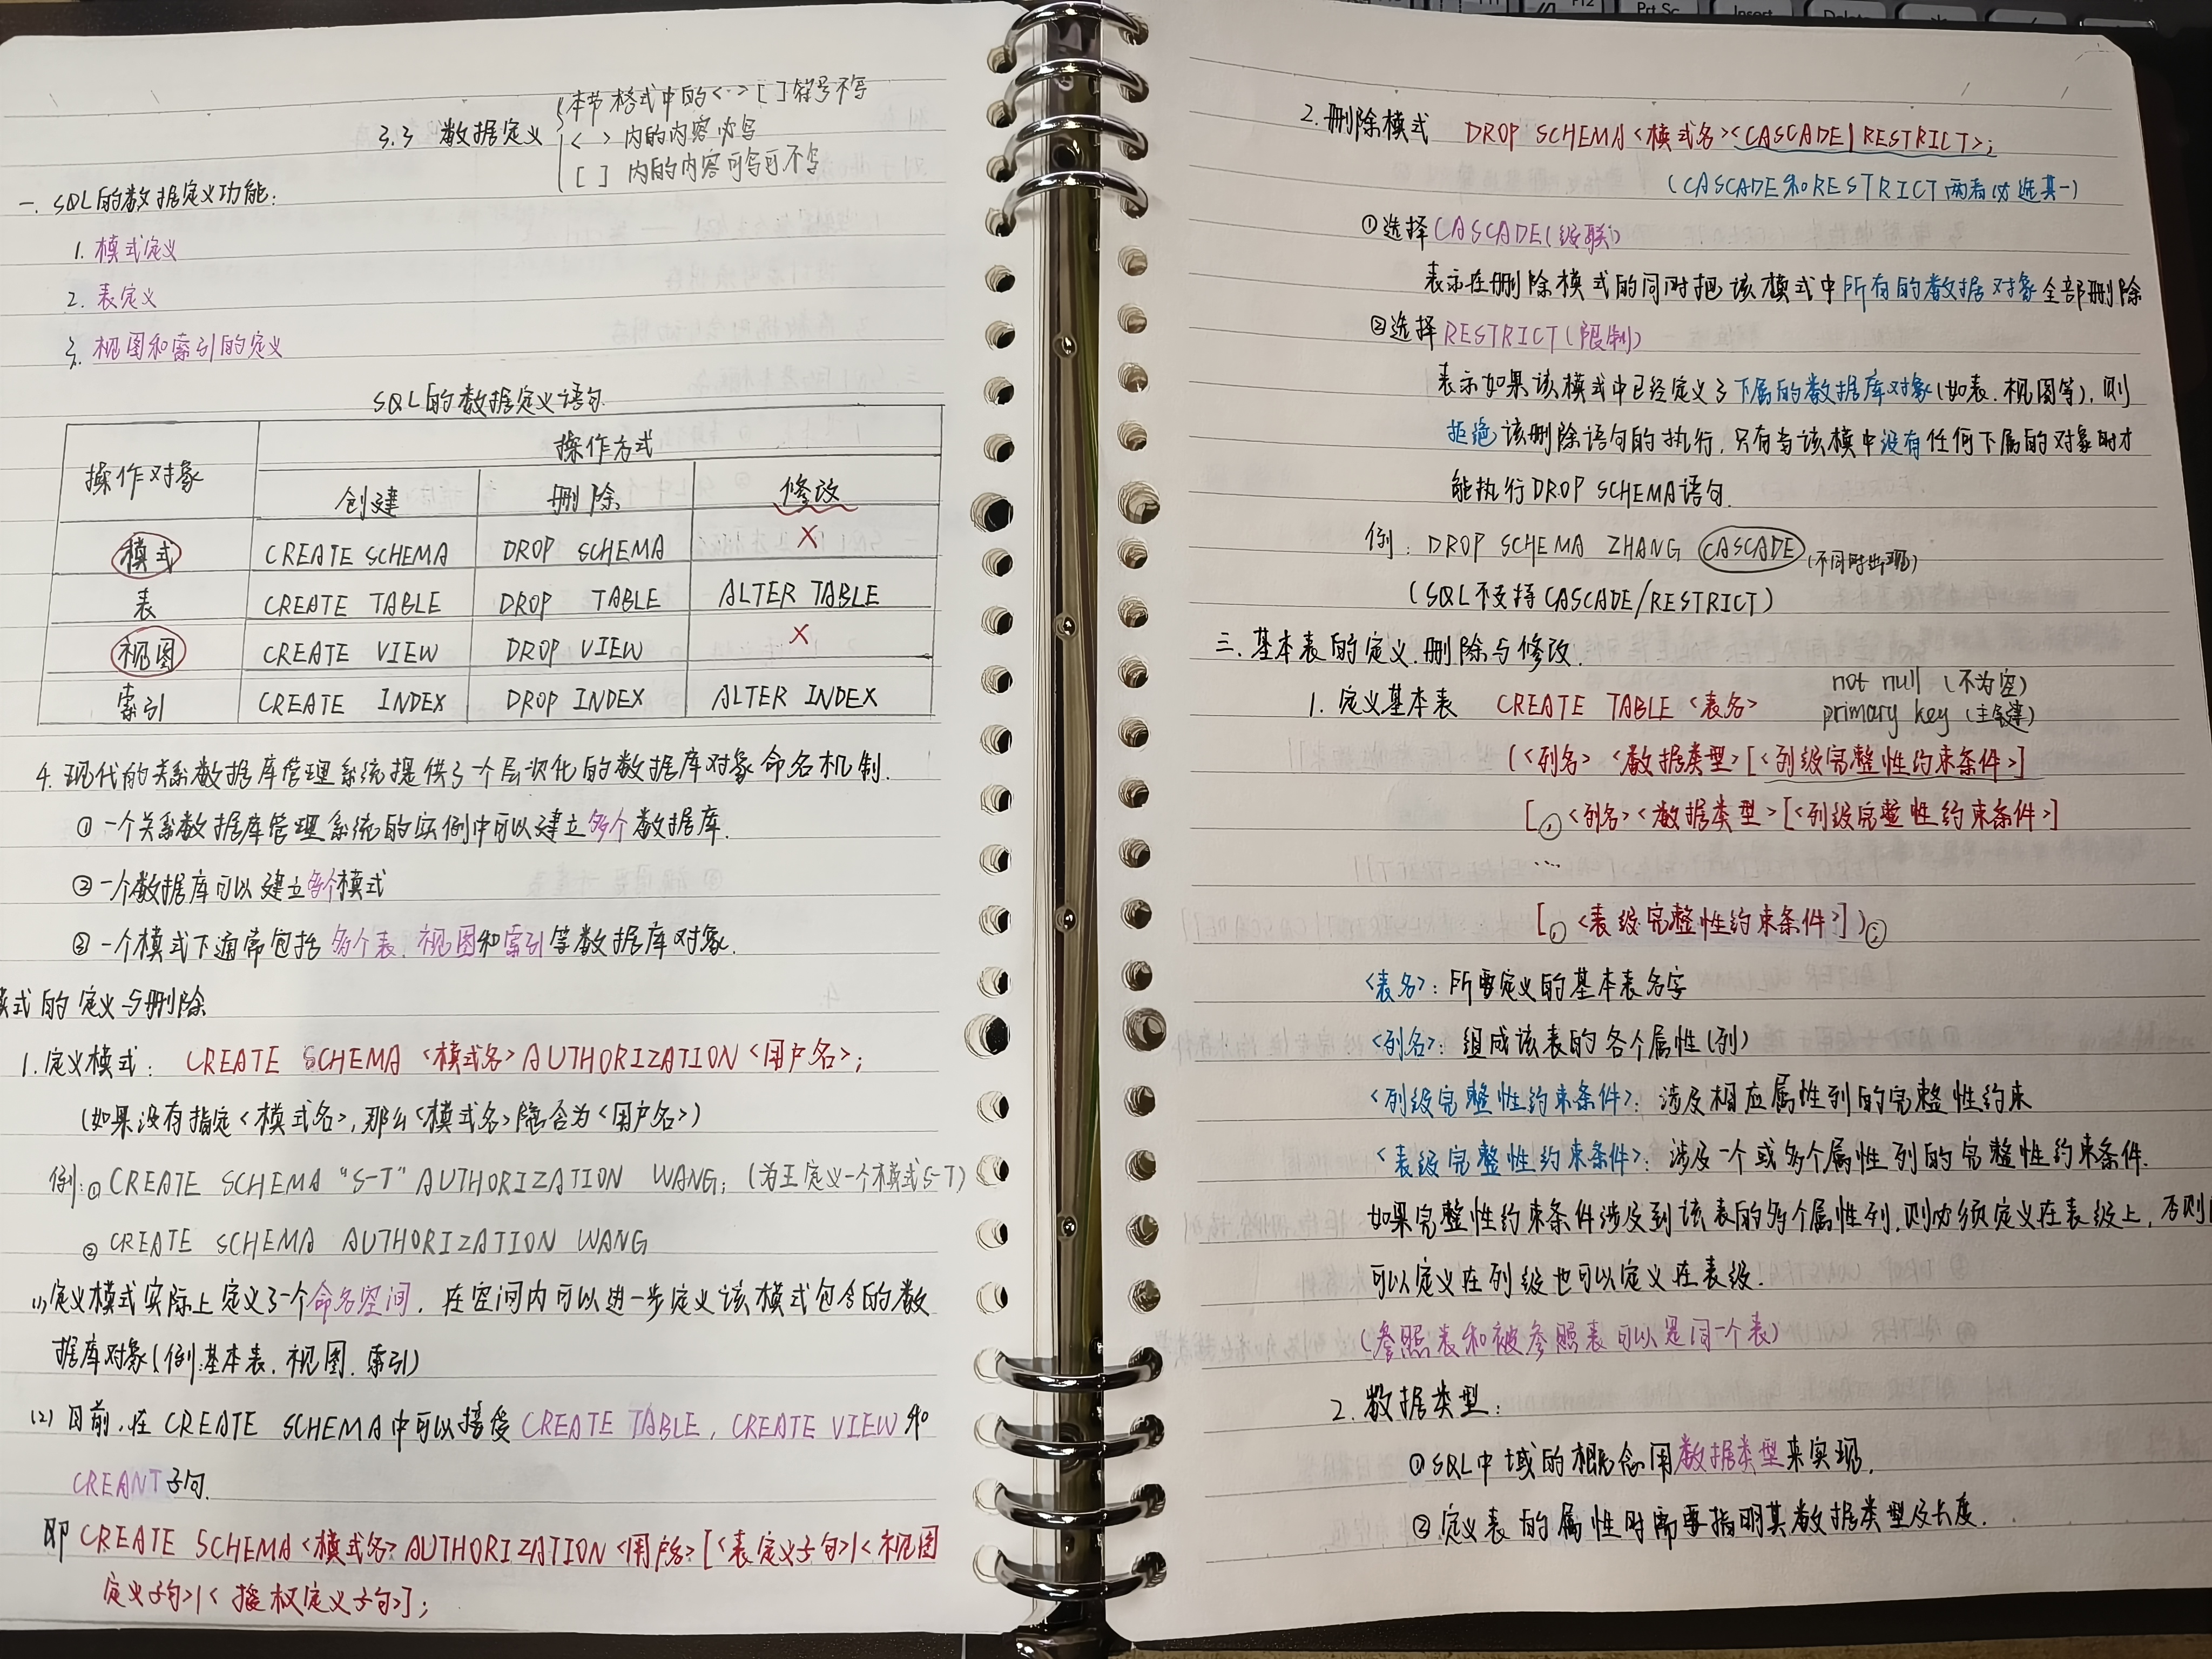 3.3 数据定义
本节格式中的<··>[ ]符号不写
< > 内的内容必写
[ ] 内的内容可写可不写
一. SQL的数据定义功能:
1. 模式定义
2. 表定义
3. 视图和索引的定义
SQL的数据定义语句
操作对象 操作方式
创建 删除 修改
模式 CREATE SCHEMA DROP SCHEMA ×
表 CREATE TABLE DROP TABLE ALTER TABLE
视图 CREATE VIEW DROP VIEW ×
索引 CREATE INDEX DROP INDEX ALTER INDEX
4. 现代的关系数据库管理系统提供了一个层次化的数据库对象命名机制.
① 一个关系数据库管理系统的实例中可以建立多个数据库.
② 一个数据库可以建立多个模式
③ 一个模式下通常包括多个表、视图和索引等数据库对象.
模式的定义与删除
1. 定义模式: CREATE SCHEMA <模式名> AUTHORIZATION <用户名>;
(如果没有指定<模式名>,那么<模式名>隐含为<用户名>)
例:① CREATE SCHEMA "S-T" AUTHORIZATION WANG; (为王定义一个模式S-T)
② CREATE SCHEMA AUTHORIZATION WANG
(1) 定义模式实际上定义了一个命名空间, 在空间内可以进一步定义该模式包含的数
据库对象(例:基本表、视图、索引)
(2) 目前,在CREATE SCHEMA中可以接受CREATE TABLE, CREATE VIEW和
CREANT子句.
即 CREATE SCHEMA <模式名> AUTHORIZATION <用户名> [<表定义子句>|<视图
定义子句>|<授权定义子句>];
2. 删除模式 DROP SCHEMA <模式名><CASCADE|RESTRICT>;
(CASCADE和RESTRICT两者必选其一)
①选择CASCADE(级联)
表示在删除模式的同时把该模式中所有的数据对象全部删除
②选择RESTRICT(限制)
表示如果该模式中已经定义了下属的数据库对象(如表、视图等),则
拒绝该删除语句的执行,只有当该模中没有任何下属的对象时才
能执行DROP SCHEMA语句.
例: DROP SCHEMA ZHANG CASCADE (不同时出现)
(SQL不支持CASCADE/RESTRICT)
三. 基本表的定义、删除与修改.
not null (不为空)
1. 定义基本表 CREATE TABLE <表名> primary key (主键)
(<列名> <数据类型>[<列级完整性约束条件>]
[, <列名><数据类型>[<列级完整性约束条件>]
...
[, <表级完整性约束条件>]);
<表名>: 所要定义的基本表名字
<列名>: 组成该表的各个属性(列)
<列级完整性约束条件>: 涉及相应属性列的完整性约束
<表级完整性约束条件>: 涉及一个或多个属性列的完整性约束条件.
如果完整性约束条件涉及到该表的多个属性列,则必须定义在表级上,否则
可以定义在列级也可以定义在表级.
(参照表和被参照表可以是同一个表)
2. 数据类型:
①SQL中域的概念用数据类型来实现.
② 定义表的属性时需要指明其数据类型及长度.